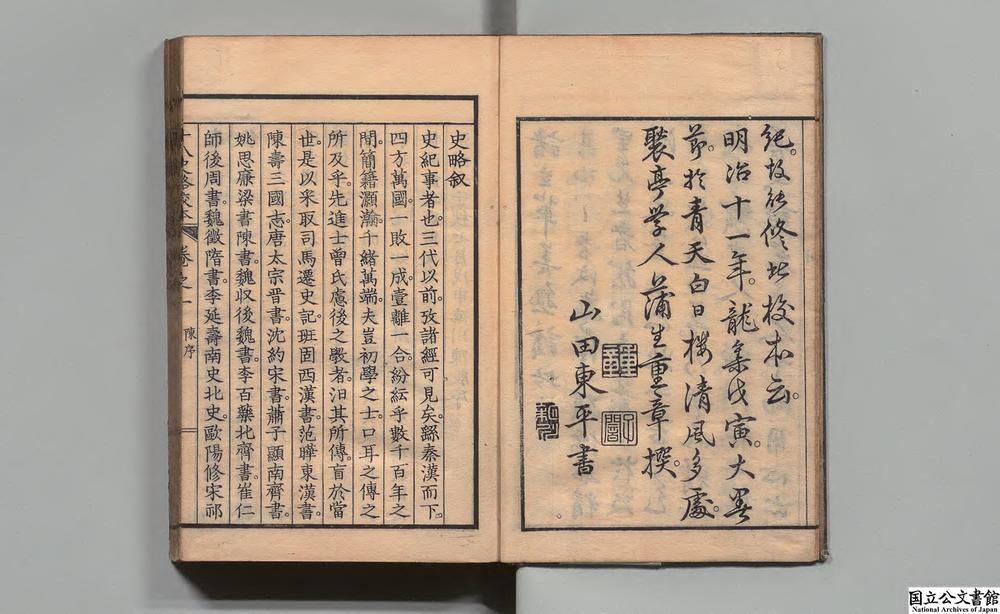 紀。故能修此校本云。
明治十一年。龍集戊寅。大暑
節。於青天白日楼清風多處。
褧亭学人蒲生重章撰。
山田東平書
重章
子闇
史略叙
史紀事者也。三代以前。攷諸經可見矣。繇秦漢而下。
四方萬國。一敗一成。壹離一合。紛紜乎數千百年之
間。簡籍灝瀚。千緒萬端。夫豈初學之士。口耳之傳之
所及乎。先進士曾氏慮後之斅者。汩其所傳。盲於當
世。是以采取司馬遷史記。班固西漢書。范曄東漢書。
陳壽三國志。唐太宗晉書。沈約宋書。蕭子顯南齊書。
姚思廉梁書陳書。魏収後魏書。李百藥北齊書。崔仁
師後周書。魏徵隋書。李延壽南史北史。歐陽修宋祁
十八史略校本 卷之一 陳序
国立公文書館
National Archives of Japan